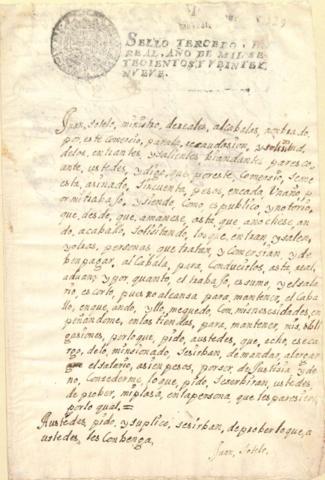 SELLO TERCERO, VN
REAL, AÑO DE MIL SE
TECIENTOS, Y VEINTE Y
NUEVE.
Juan, Sotelo, ministro, de reales, alcabalas, nombrado,
por, este Comersio, para la, recaudasion, y solisitud,
delos, entrantes, y salientes biandantes paresco,
ante, ustedes, y digo, que por este Comersio, Seme
esta, asinado, Sincuenta, pesos, encada, Un año, p
or mi trabajo, y siendo, Como es publico, y notorio
que, desde, que, amanese, asta, que anochese, an
do, acaballo, Solisitando, los que, entran, y salen,
y otras, personas que tratan, y Comersian, y de
ben pagar, al Cabala, para, Conducirlos, asta, real,
aduana, y por, quanto, el trabajo, es sumo, y el sala
rio, es corto, pues no alcansa, para, mantener, el Caba
llo, en que, ando, y llo, me quedo, Con, mis nesesidades, em
peñandome, en las tiendas, para, mantener, mis, obli
gasiones, por lo que, pido, austedes, que, echo, es car
go, de lo, minsionado, Se sirban, de mandar, alargar
el salario, asien pesos, por ser, de Justisia, y de
no, Consederme, lo que, pido, Se serbiran, ustedes,
de prober, mi plasa, en la persona, que les paresiere,
por lo qual.=
Austedes, pido, y suplico, se sirban, de prober lo que, a
ustedes, les Conbenga,
Juan, Sotelo.